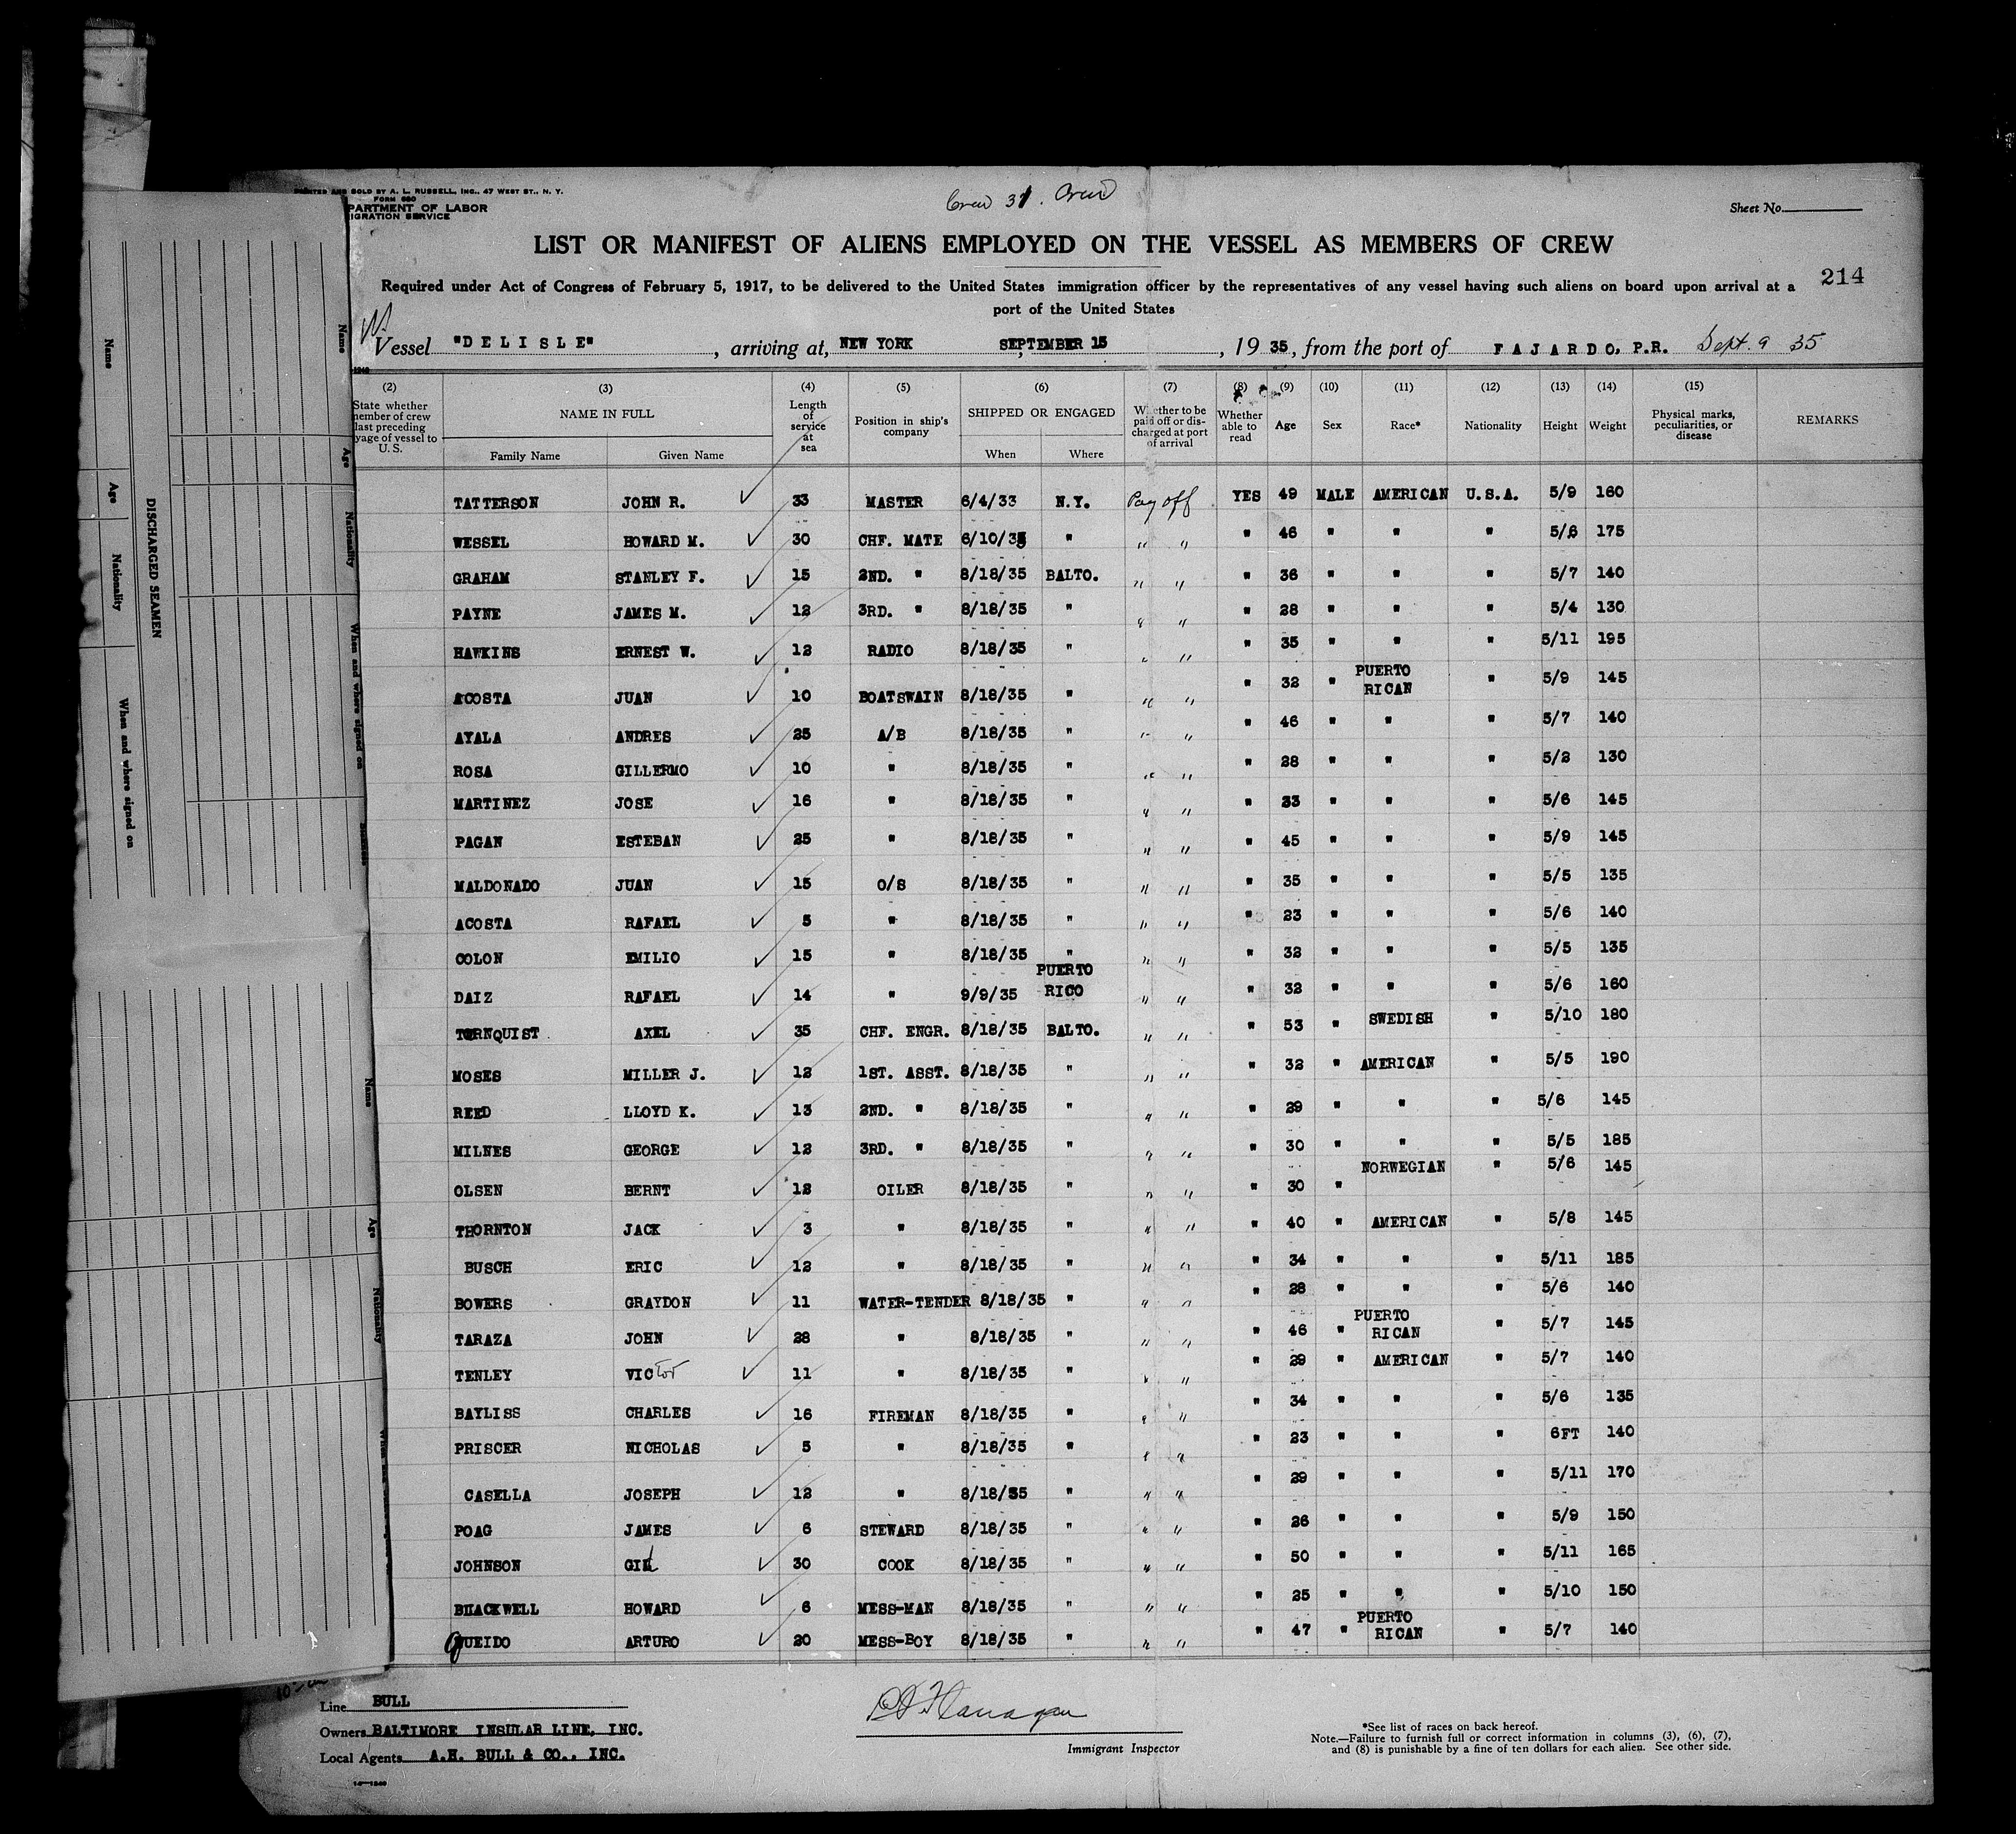 PRINTED AND SOLD BY A. L. RUSSELL, INC., 47 WEST ST., N. Y.
FORM 680
PARTMENT OF LABOR
IGRATION SERVICE
Crew 31. Crew
Sheet No.
LIST OR MANIFEST OF ALIENS EMPLOYED ON THE VESSEL AS MEMBERS OF CREW
214
Required under Act of Congress of February 5, 1917, to be delivered to the United States immigration officer by the representatives of any vessel having such aliens on board upon arrival at a
port of the United States
Vessel "DELISLE", arriving at, NEW YORK SEPTEMBER 15, 1935, from the port of FAJARDO, P.R. Sept. 9 35
(2) (3) (4) (5) (6) (7) (8) (9) (10) (11) (12) (13) (14) (15)
State whether member of crew last preceding yage of vessel to U.S.
NAME IN FULL
Family Name Given Name
Length of service at sea
Position in ship's company
SHIPPED OR ENGAGED
When Where
Whether to be paid off or discharged at port of arrival
Whether able to read
Age Sex Race* Nationality Height Weight
Physical marks, peculiarities, or disease
REMARKS
TATTERSON JOHN R. 33 MASTER 6/4/33 N.Y. Pay off YES 49 MALE AMERICAN U.S.A. 5/9 160
WESSEL HOWARD M. 30 CHF. MATE 6/10/35 " " " " 46 " " " 5/6 175
GRAHAM STANLEY F. 15 2ND. " 8/18/35 BALTO. " " " 36 " " " 5/7 140
PAYNE JAMES M. 12 3RD. " 8/18/35 " " " " 28 " " " 5/4 130
HAWKINS ERNEST W. 12 RADIO 8/18/35 " " " " 35 " " " 5/11 195
ACOSTA JUAN 10 BOATSWAIN 8/18/35 " " " " 32 " PUERTO RICAN " 5/9 145
AYALA ANDRES 25 A/B 8/18/35 " " " " 46 " " " 5/7 140
ROSA GILLERMO 10 " 8/18/35 " " " " 28 " " " 5/2 130
MARTINEZ JOSE 16 " 8/18/35 " " " " 33 " " " 5/6 145
PAGAN ESTEBAN 25 " 8/18/35 " " " " 45 " " " 5/9 145
MALDONADO JUAN 15 O/S 8/18/35 " " " " 35 " " " 5/5 135
ACOSTA RAFAEL 5 " 8/18/35 " " " " 23 " " " 5/6 140
COLON EMILIO 15 " 8/18/35 " " " " 32 " " " 5/5 135
DAIZ RAFAEL 14 " 9/9/35 PUERTO RICO " " " 32 " " " 5/6 160
TORNQUIST AXEL 35 CHF. ENGR. 8/18/35 BALTO. " " " 53 " SWEDISH " 5/10 180
MOSES MILLER J. 12 1ST. ASST. 8/18/35 " " " " 32 " AMERICAN " 5/5 190
REED LLOYD K. 13 2ND. " 8/18/35 " " " " 29 " " " 5/6 145
MILNES GEORGE 12 3RD. " 8/18/35 " " " " 30 " " " 5/5 185
OLSEN BERNT 12 OILER 8/18/35 " " " " 30 " NORWEGIAN " 5/6 145
THORNTON JACK 3 " 8/18/35 " " " " 40 " AMERICAN " 5/8 145
BUSCH ERIC 12 " 8/18/35 " " " " 34 " " " 5/11 185
BOWERS GRAYDON 11 WATER-TENDER 8/18/35 " " " " 28 " " " 5/6 140
TARAZA JOHN 28 " 8/18/35 " " " " 46 " PUERTO RICAN " 5/7 145
TENLEY VICTOR 11 " 8/18/35 " " " " 29 " AMERICAN " 5/7 140
BAYLISS CHARLES 16 FIREMAN 8/18/35 " " " " 34 " " " 5/6 135
PRISCER NICHOLAS 5 " 8/18/35 " " " " 23 " " " 6FT 140
CASELLA JOSEPH 12 " 8/18/35 " " " " 29 " " " 5/11 170
POAG JAMES 6 STEWARD 8/18/35 " " " " 26 " " " 5/9 150
JOHNSON GIL 30 COOK 8/18/35 " " " " 50 " " " 5/11 165
BLACKWELL HOWARD 6 MESS-MAN 8/18/35 " " " " 25 " " " 5/10 150
QUEIDO ARTURO 20 MESS-BOY 8/18/35 " " " " 47 " PUERTO RICAN " 5/7 140
Line BULL
Owners BALTIMORE INSULAR LINE, INC.
Local Agents A.H. BULL & CO., INC.
Flanagan
Immigrant Inspector
*See list of races on back hereof.
Note.—Failure to furnish full or correct information in columns (3), (6), (7),
and (8) is punishable by a fine of ten dollars for each alien. See other side.
14—1240
DISCHARGED SEAMEN
Name Age Nationality When and where signed on
Name Age Nationality When and where signed on
Name Age Nationality